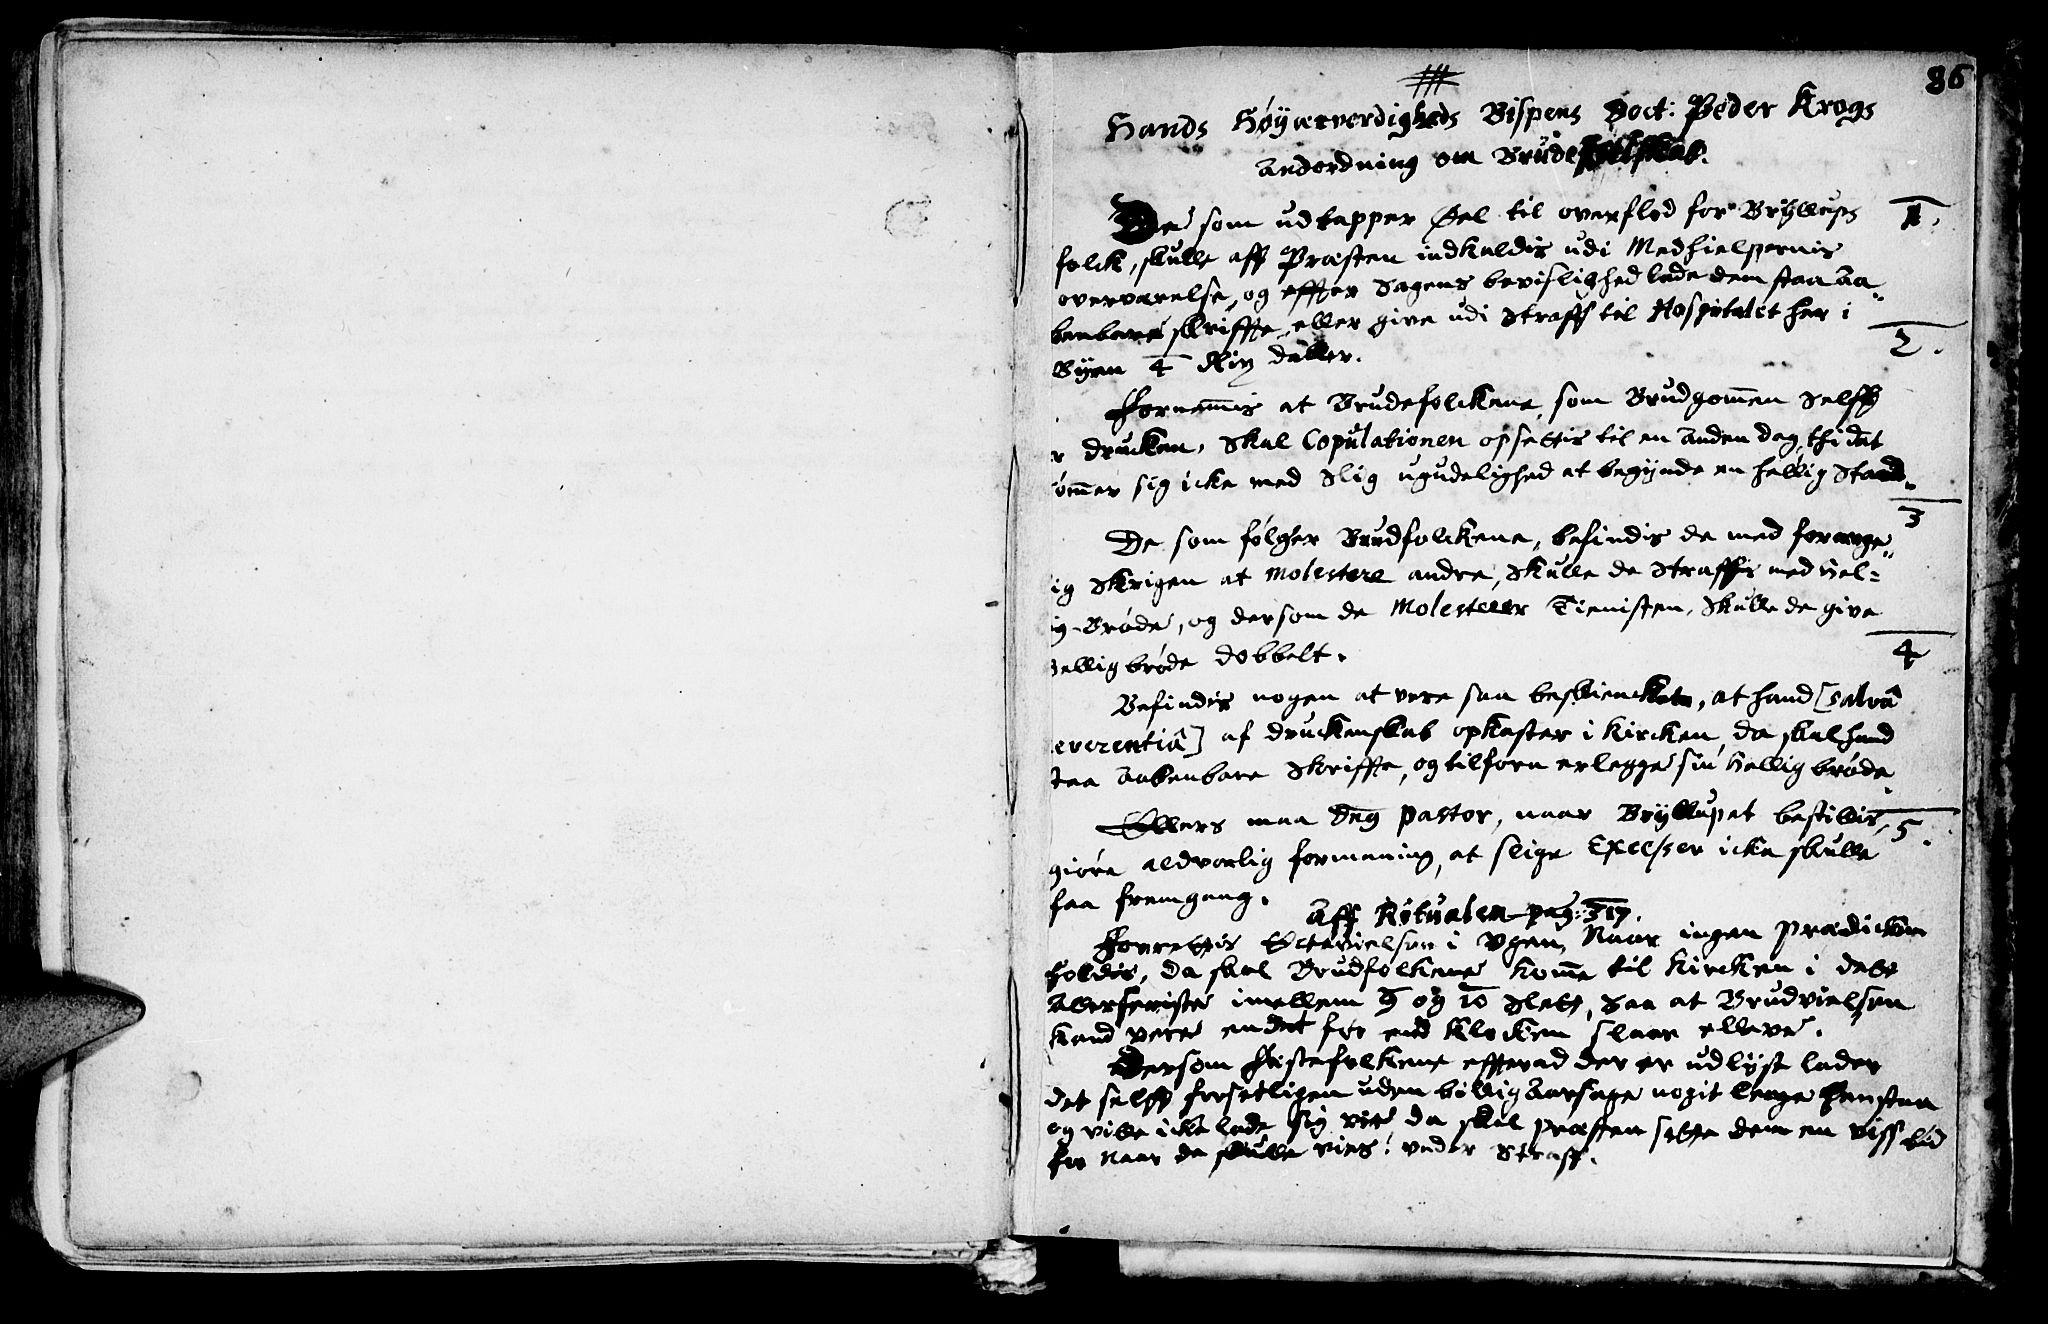 86
Hands Høyærverdigheds Bispens Doct: Peder Krogs
Andordning om Brudeselskab.
1.
De som udtapper Øel til overflød for Bryllups
folck, skulle aff Præsten indkaldis udi Medhielpernis
overværelse, og effter Sagens bevislighed lade dem staa Aa„
benbare skriffte, eller give udi Straff til Hospitalet her i
Byen 4 Rix daller.
2.
Fornemis at Brudefolckene, som Brudgom̄en Selff
r drucken, Skal Copulationen opsettis til en anden dag, thi dat
øm̄er sig icke med Slig ugudelighed at begynde en hellig Stand.
3
De som følger Brudfolckene, befindis de med forarge„
ig Skrigen at molestere andre, Skulle de Straffis med Hel=
ig-Brøde, og dersom de Molesterer Tienisten, Skulle de give
Hellig brøde dobbelt.
4
Befindis nogen at vere saa beskiencket, at hand [salvâ
everentiâ] af druckenskab opkaster i Kircken, da skal hand
taa Aabenbare Skriffte, og tilforn erlegge sin Hellig brøde.
5.
Ellers maa Dng Pastor, naar Bryllupet bestillis,
giøre alvorlig formaning, at slige Excesser icke skulle
faa fremgang.
Aff Ritualen pag: 317.
Forrettis Ectevielsen i Ugen, Naar ingen prædicken
holdis, da skal Brudfolckene kom̄e til Kircken i det
Allerseniste imellem 9 og 10 Slett, Saa at Brudvielsen
kand vere endet før end Klocken slaar ellave.
Dersom Festefolckene effterad der er udlyst lader
det selff forsetligen uden billig Aarsage nogit lenge henstaa
og ville icke lade sig vie da skal præsten sette dem en viss tid
for Naar de skulle vies: under Straff.